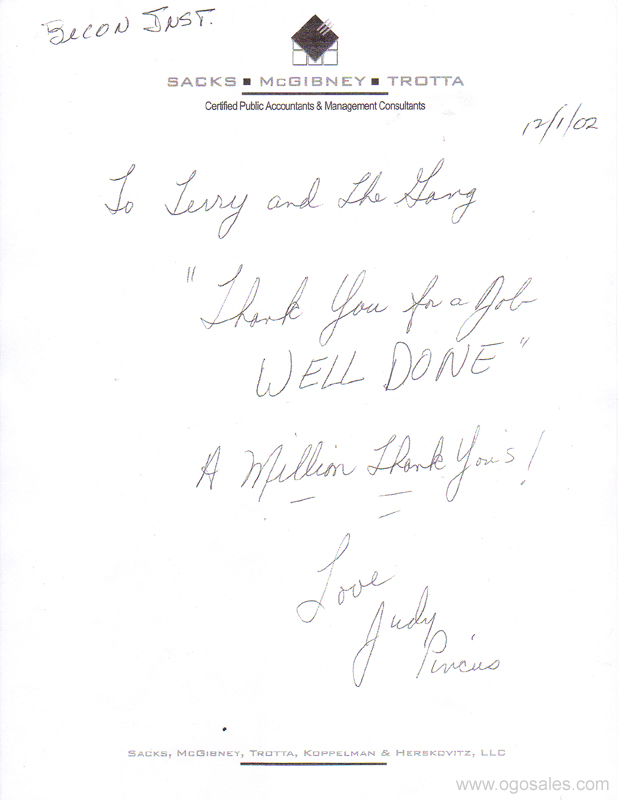 Becon Inst.
SACKS ■ McGIBNEY ■ TROTTA
Certified Public Accountants & Management Consultants
12/1/02
To Terry and the Gang
"Thank You for a Job
WELL DONE"
A Million Thank You's!
Love
Judy
Pincus
SACKS, McGIBNEY, TROTTA, KOPPELMAN & HERSKOVITZ, LLC
www.ogosales.com